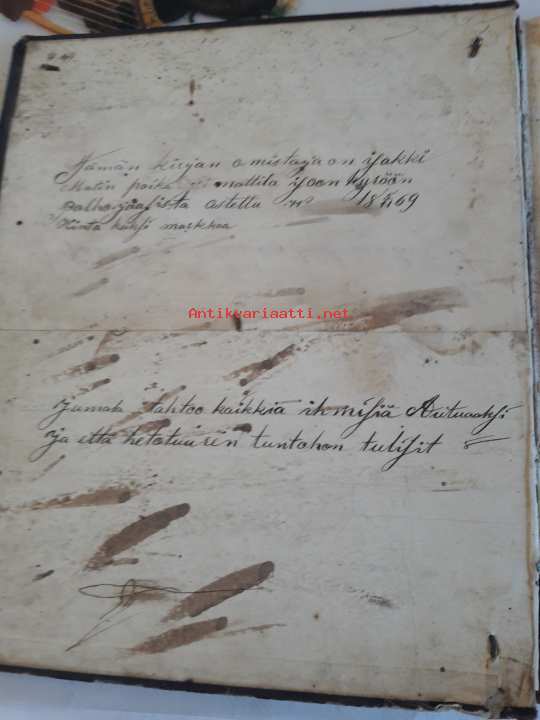 Tämän kirjan omistaja on isakki
Matin poika mattila ison kyröön
Palhojaisista ostettu w 18 4/1 69
Hinta kaksi markkaa
Antikvariaatti.net
Jumala tahtoo kaikkia ihmisiä Autuaaksi
Ja että he totuuden tuntohon tulisit